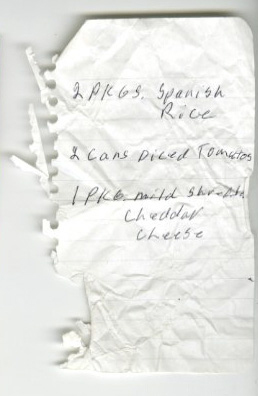 2 PKGS. Spanish
Rice
2 cans Diced Tomatoes
1 PKG. mild
Cheddar
cheese